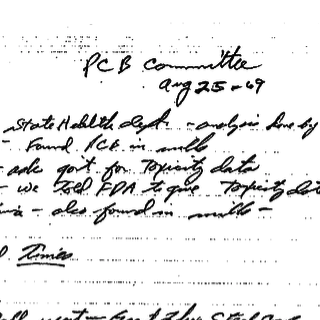 PCB Committee
Aug 25-69
State Health dept. - analysis done by
- Found PCB in milk
- ask govt for Toxicity data
- we told FDA to give Toxicity dat
- also found in milk -
Times